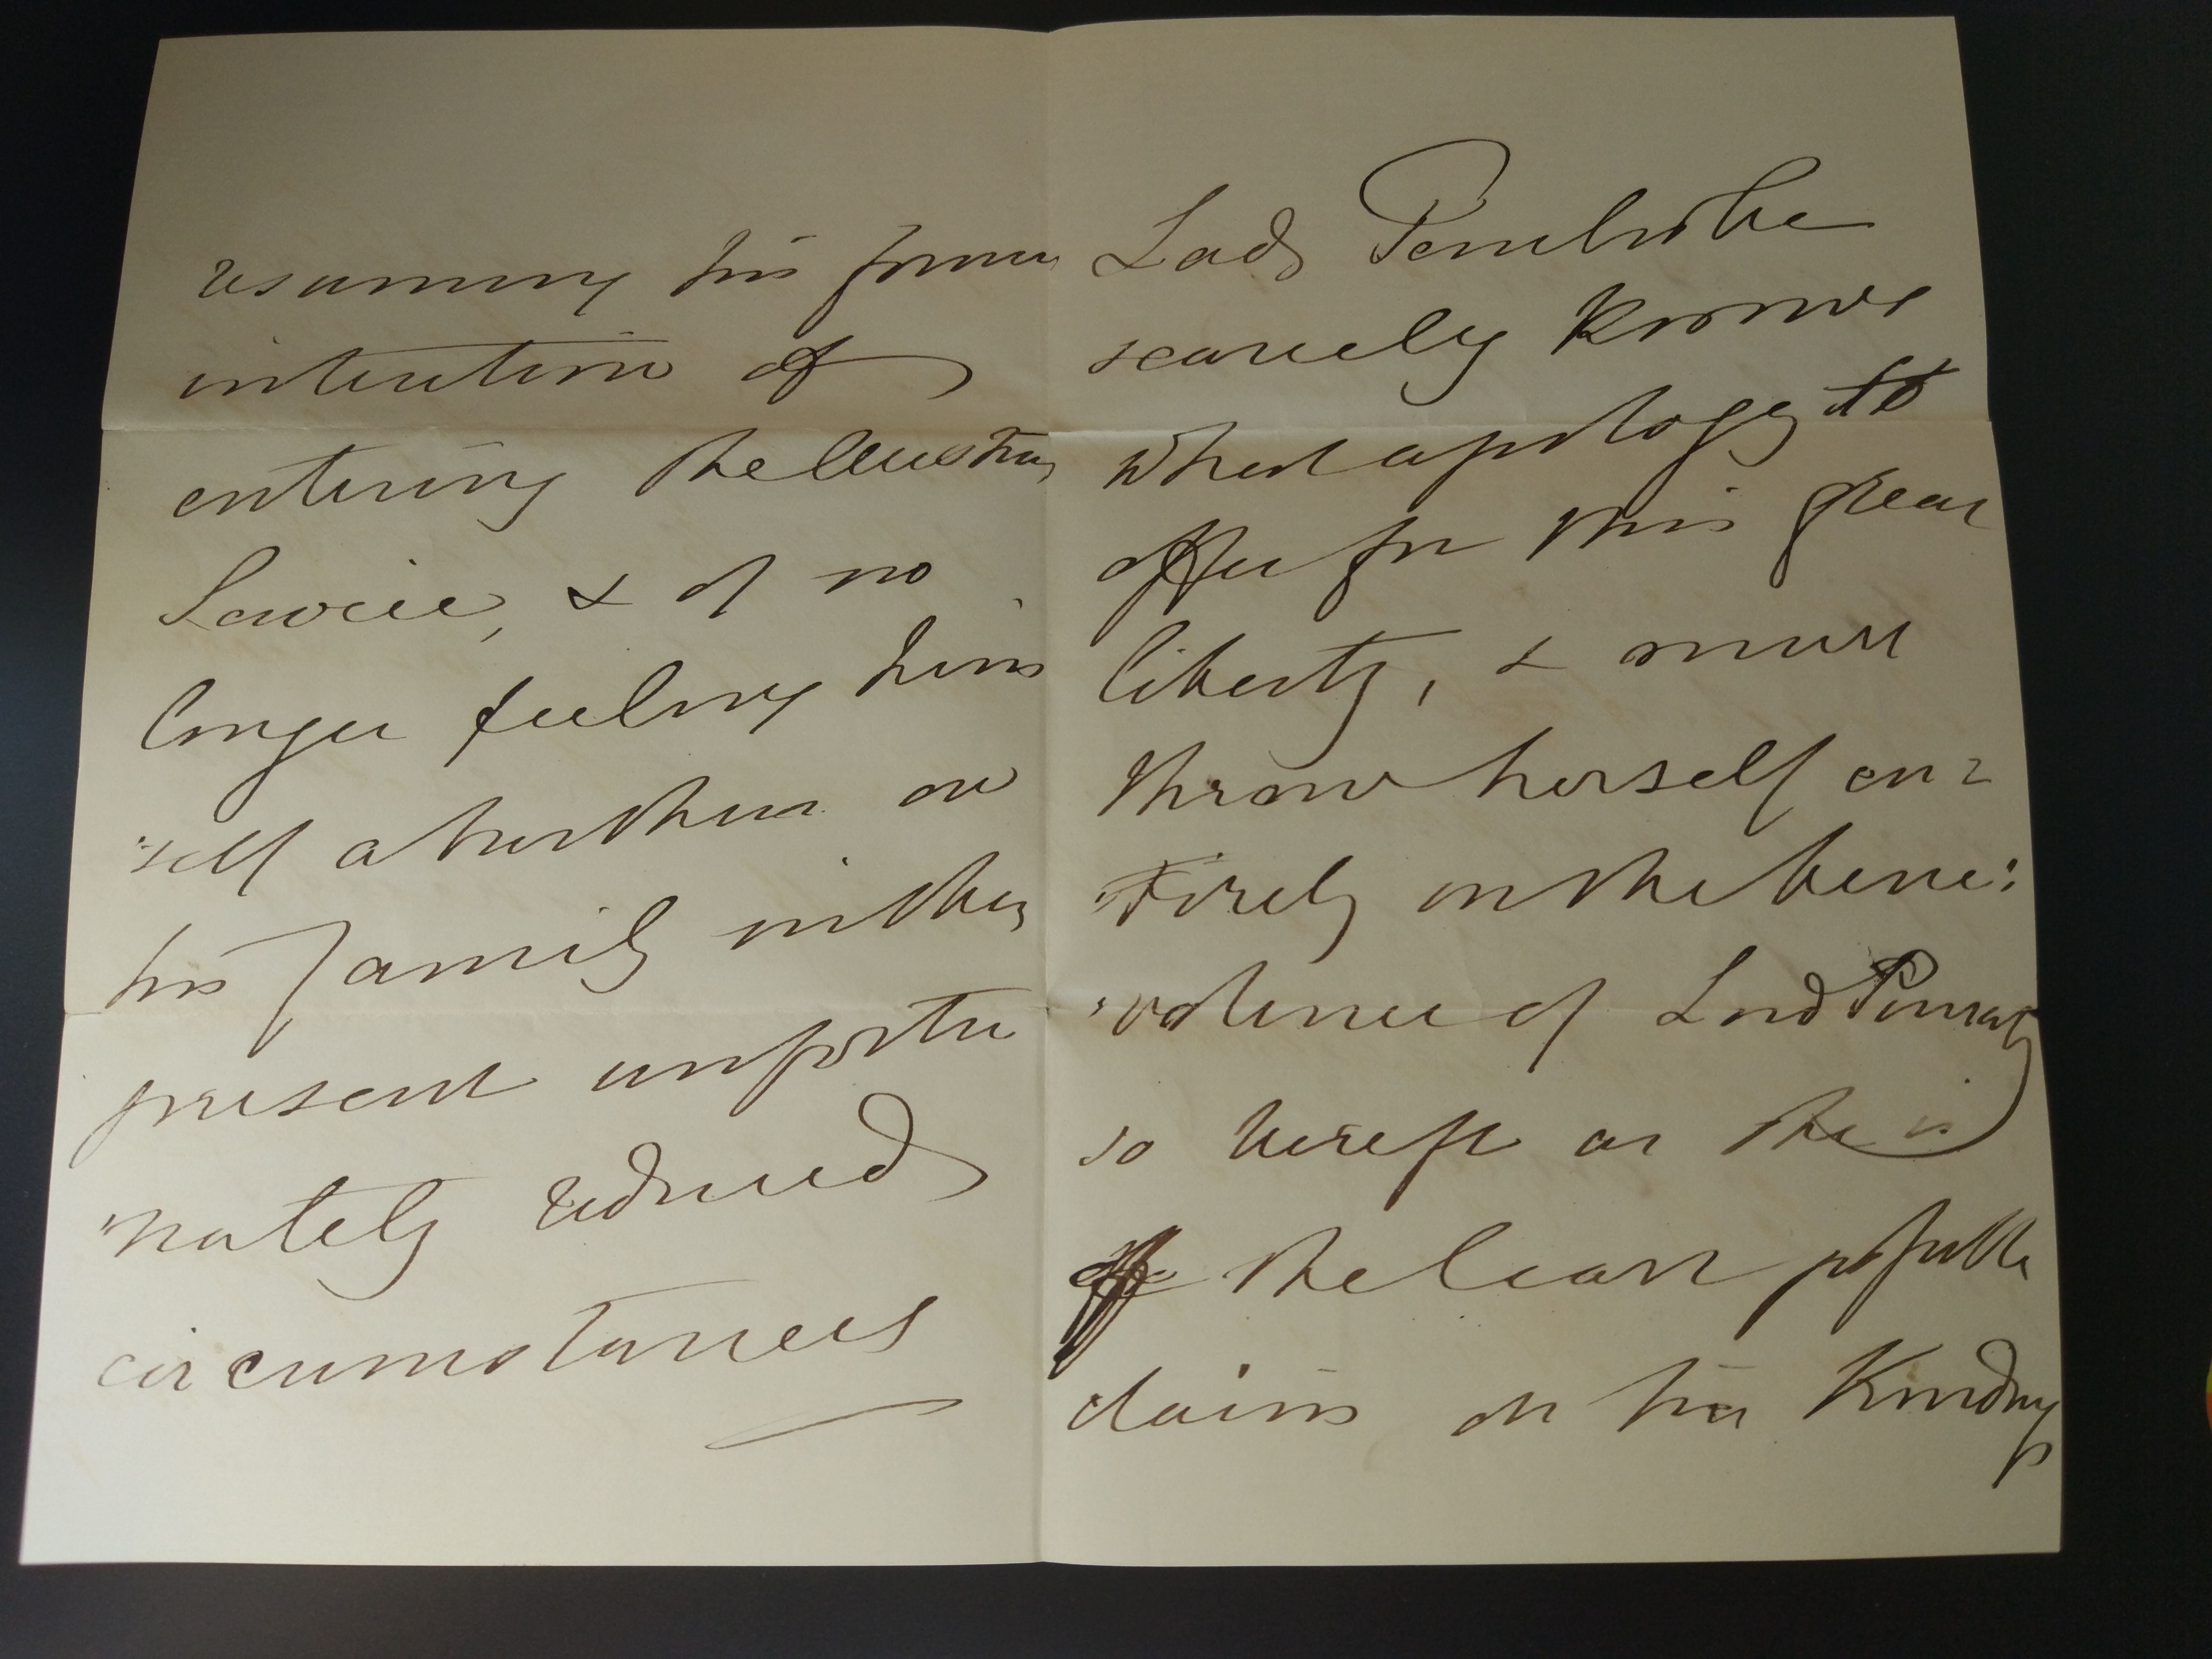 resuming his former
intention of
entering the Austrian
Service, & of no
longer feeling him
"self a burthen on
his family in their
present unfortu
"nately reduced
circumstances
Lady Pembroke
scarcely knows
what apology to
offer for this great
liberty, & must
throw herself en=
"tirely on the bene:
"volence of Lord
so bereft as she is
of the least possible
claims on his Kindness